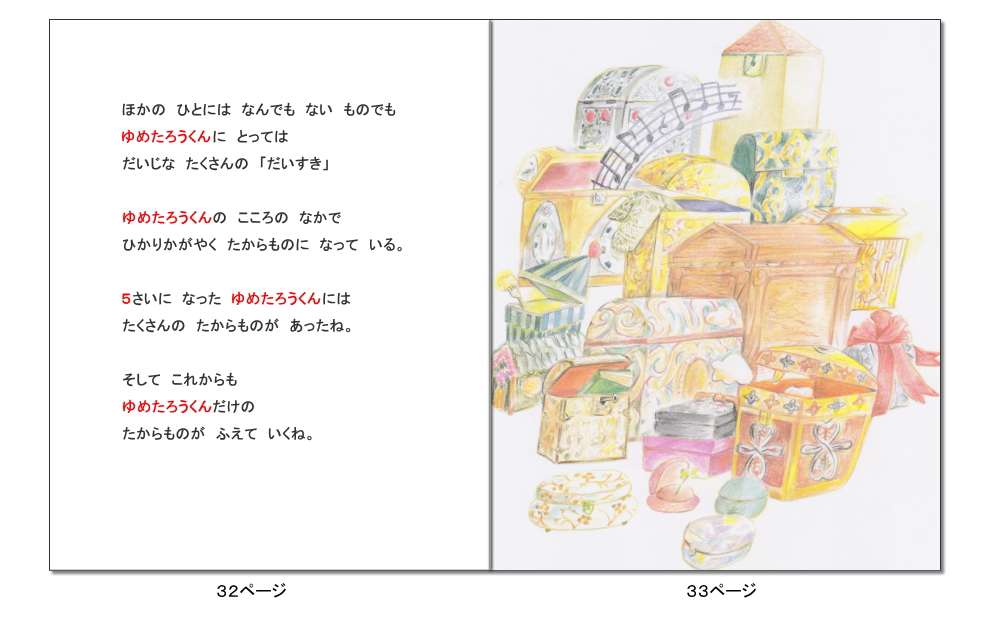 ほかの ひとには なんでも ない ものでも
ゆめたろうくんに とっては
だいじな たくさんの 「だいすき」
ゆめたろうくんの こころの なかで
ひかりかがやく たからものに なって いる。
5さいに なった ゆめたろうくんには
たくさんの たからものが あったね。
そして これからも
ゆめたろうくんだけの
たからものが ふえて いくね。
32ページ
33ページ